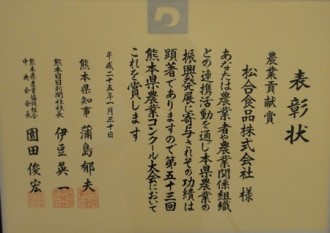 表彰状
農業貢献賞
松合食品株式会社 様
あなたは農業者や農業関係組織
との連携活動を通し本県農業の
振興発展に寄与されその功績は
顕著でありますので第五十三回
熊本県農業コンクール大会において
これを賞します
平成二十五年一月三十日
熊本県知事 蒲島郁夫
熊本日日新聞社社長 伊豆英一
熊本県農業協同組合
中央会会長 園田俊宏